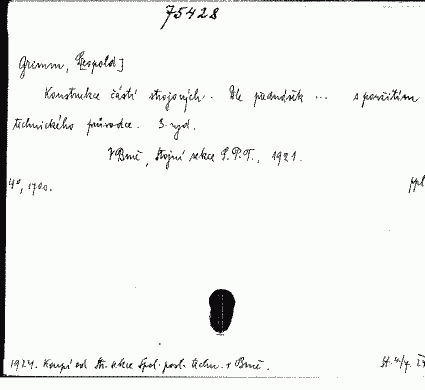 75428
Grimm, [Leopold]
Konstrukce částí strojových. Dle přednášek ... s použitím
technického průvodce. 3. vyd.
V Brně, Strojní sekce S.P.T., 1921.
4°, 170 s.
1924. Koupí od Str. sekce Spol. posl. techn. v Brně.